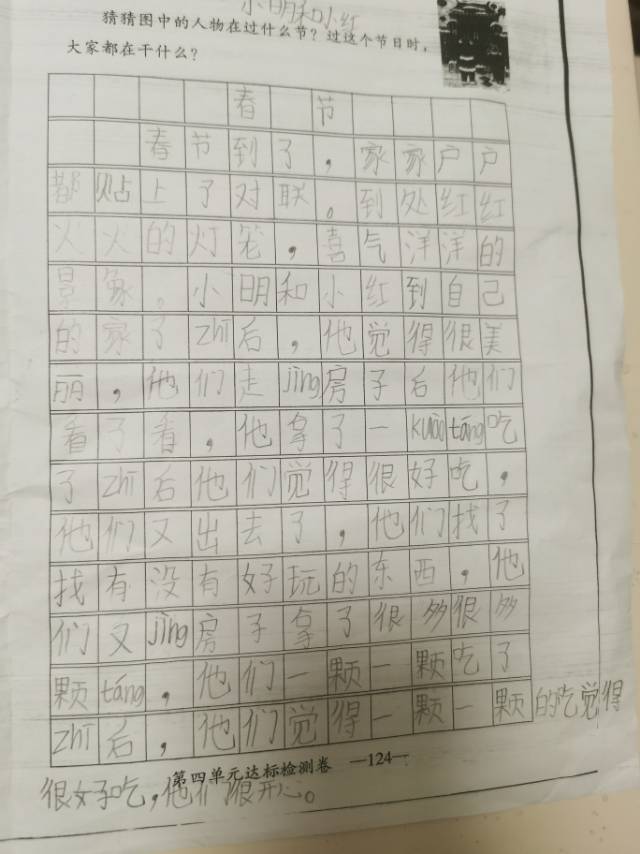 小明和小红
猜猜图中的人物在过什么节？过这个节日时，
大家都在干什么？
春节
春节到了，家家户户
都贴上了对联。到处红红
火火的灯笼，喜气洋洋的
景象。小明和小红到自己
的家了zhī后，他觉得很美
丽，他们走jìng房子后他们
看了看，他拿了一kuàitáng吃
了zhī后他们觉得很好吃，
他们又出去了，他们找了
找有没有好玩的东西，他
们又jìng房子拿了很多很多
颗táng，他们一颗一颗吃了
zhī后，他们觉得一颗一颗的吃觉得
第四单元达标检测卷 —124—
很好吃，他们很开心。